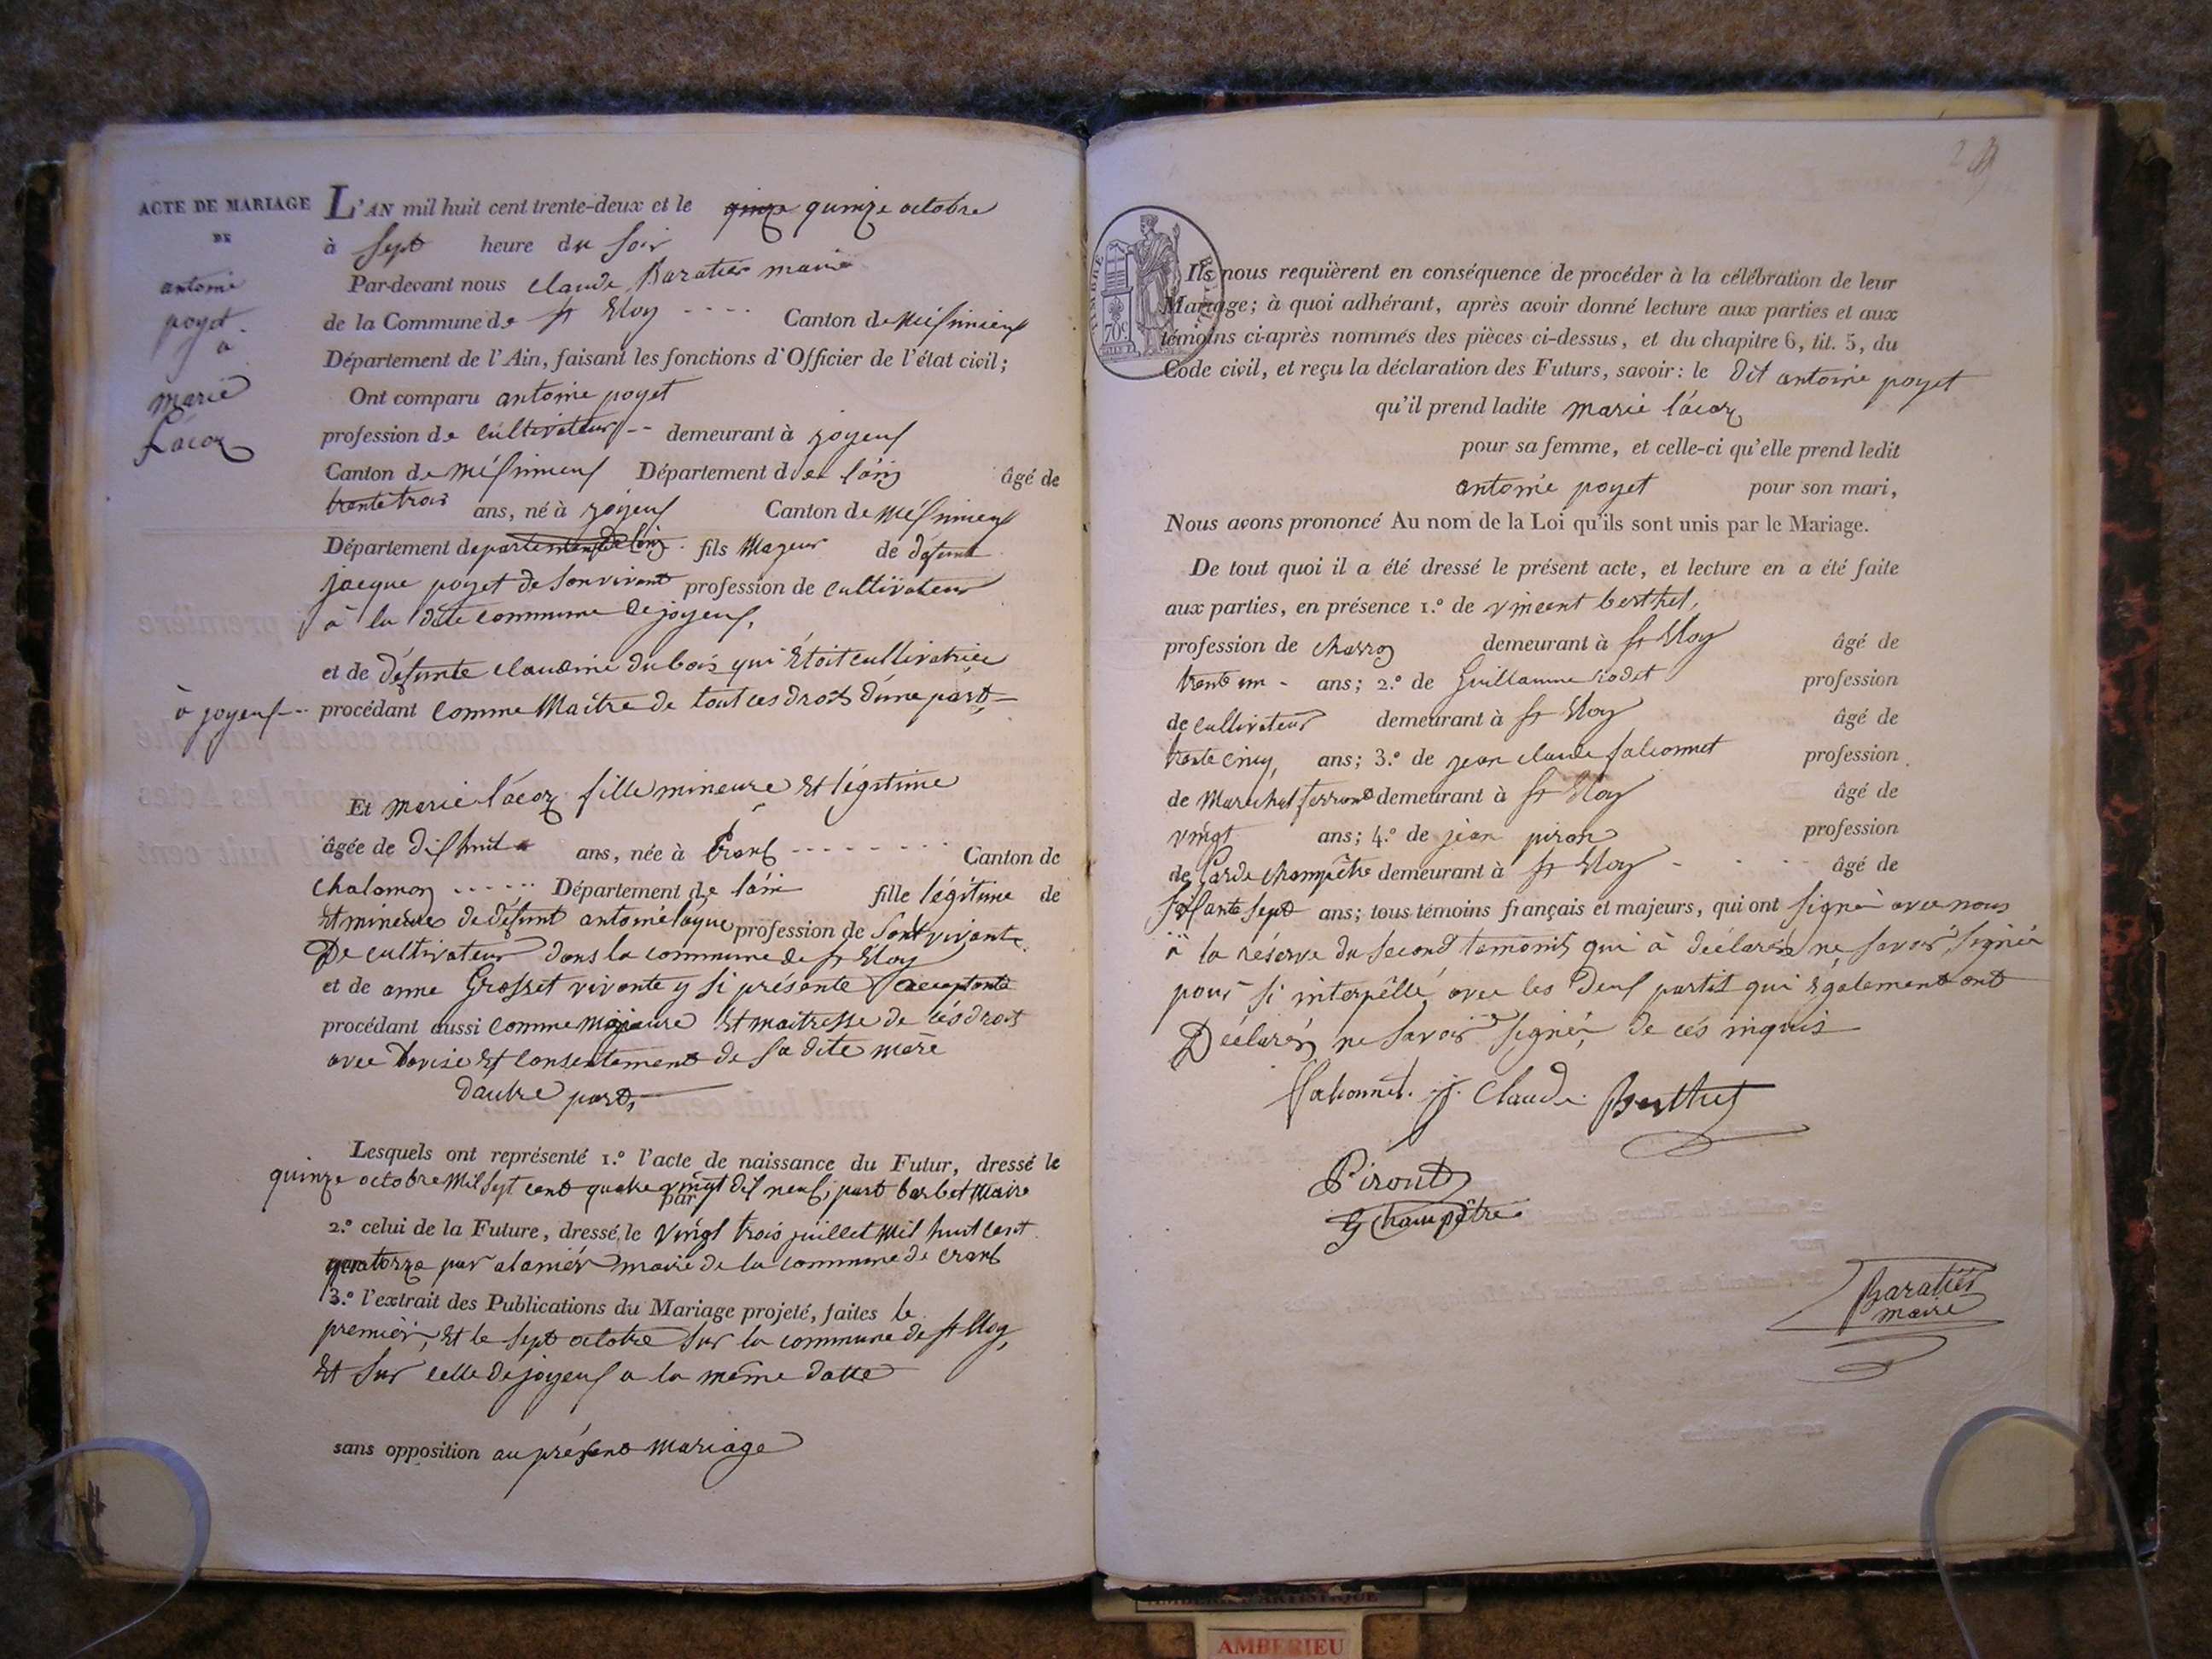 ACTE DE MARIAGE
DE
antoine
poyet
a
marie
L'AN mil huit cent trente-deux et le quinze octobre
à Sept heure du Soir
Par-devant nous claude Baratier maire
de la Commune de st Eloy Canton de Méssimieux
Département de l'Ain, faisant les fonctions d'Officier de l'état civil;
Ont comparu antoine poyet
profession de cultivateur demeurant à joyeux
Canton de Méssimieux Département de âgé de
trente trois ans, né à joyeux Canton de Méssimieux
Département fils Majeur de défunt
jacque poyet de Son vivant profession de cultivateur
à la dite commune de joyeux,
et de défunte claudine dubois qui Etoit cultivatrice
à joyeux procédant comme Maître de tout ces droits d'une part
Et marie fille mineure Et légitime
âgée de dix huit ans, née à Crans Canton de
chalamon Département de fille légitime de
Et mineure de défunt antoine profession de Sont vivante
De cultivateur dans la commune de st Eloy
et de anne Grosset vivante y si présente acceptante
procédant aussi comme majeure Et maitresse de ces droits
avec l'avise Et consentement de Sa dite mère
dautre part,
Lesquels ont représenté 1.º l'acte de naissance du Futur, dressé le
quinze octobre Mil Sept cent quatre vingt dix neuf, part barbet Maire
par
2.º celui de la Future, dressé le vingt trois juillet Mil huit cent
quatorze par alanier maire de la commune de crans
3.º l'extrait des Publications du Mariage projeté, faites le
premier, Et le Sept octobre Sur la commune de st Eloy,
Et Sur celle de joyeux a la même datte
sans opposition au présent Mariage
TIMBRE
70c
Ils nous requièrent en conséquence de procéder à la célébration de leur
Mariage; à quoi adhérant, après avoir donné lecture aux parties et aux
témoins ci-après nommés des pièces ci-dessus, et du chapitre 6, tit. 5, du
Code civil, et reçu la déclaration des Futurs, savoir: le Dit antoine poyet
qu'il prend ladite marie
pour sa femme, et celle-ci qu'elle prend ledit
antoine poyet pour son mari,
Nous avons prononcé Au nom de la Loi qu'ils sont unis par le Mariage.
De tout quoi il a été dressé le présent acte, et lecture en a été faite
aux parties, en présence 1.º de vincent berthet,
profession de charron demeurant à st Eloy âgé de
trente un ans; 2.º de Guillaume rodet profession
de cultivateur demeurant à st Eloy âgé de
trente cinq, ans; 3.º de jean claude falconnet profession
de Maréchal ferrant demeurant à st Eloy âgé de
vingt ans; 4.º de jean piron profession
de Garde champêtre demeurant à st Eloy âgé de
Soixante Sept ans; tous témoins français et majeurs, qui ont Signé avec nous
à la réserve du Second temoins qui à déclaré ne Savoir Signér
pour si interpellé, avec les deux partis qui Egalement ont
Déclarés ne Savoir Signér de ces inquis
falconnet. j. Claude. Berthet
Piront
G Champêtre
Baratier
maire
AMBERIEU